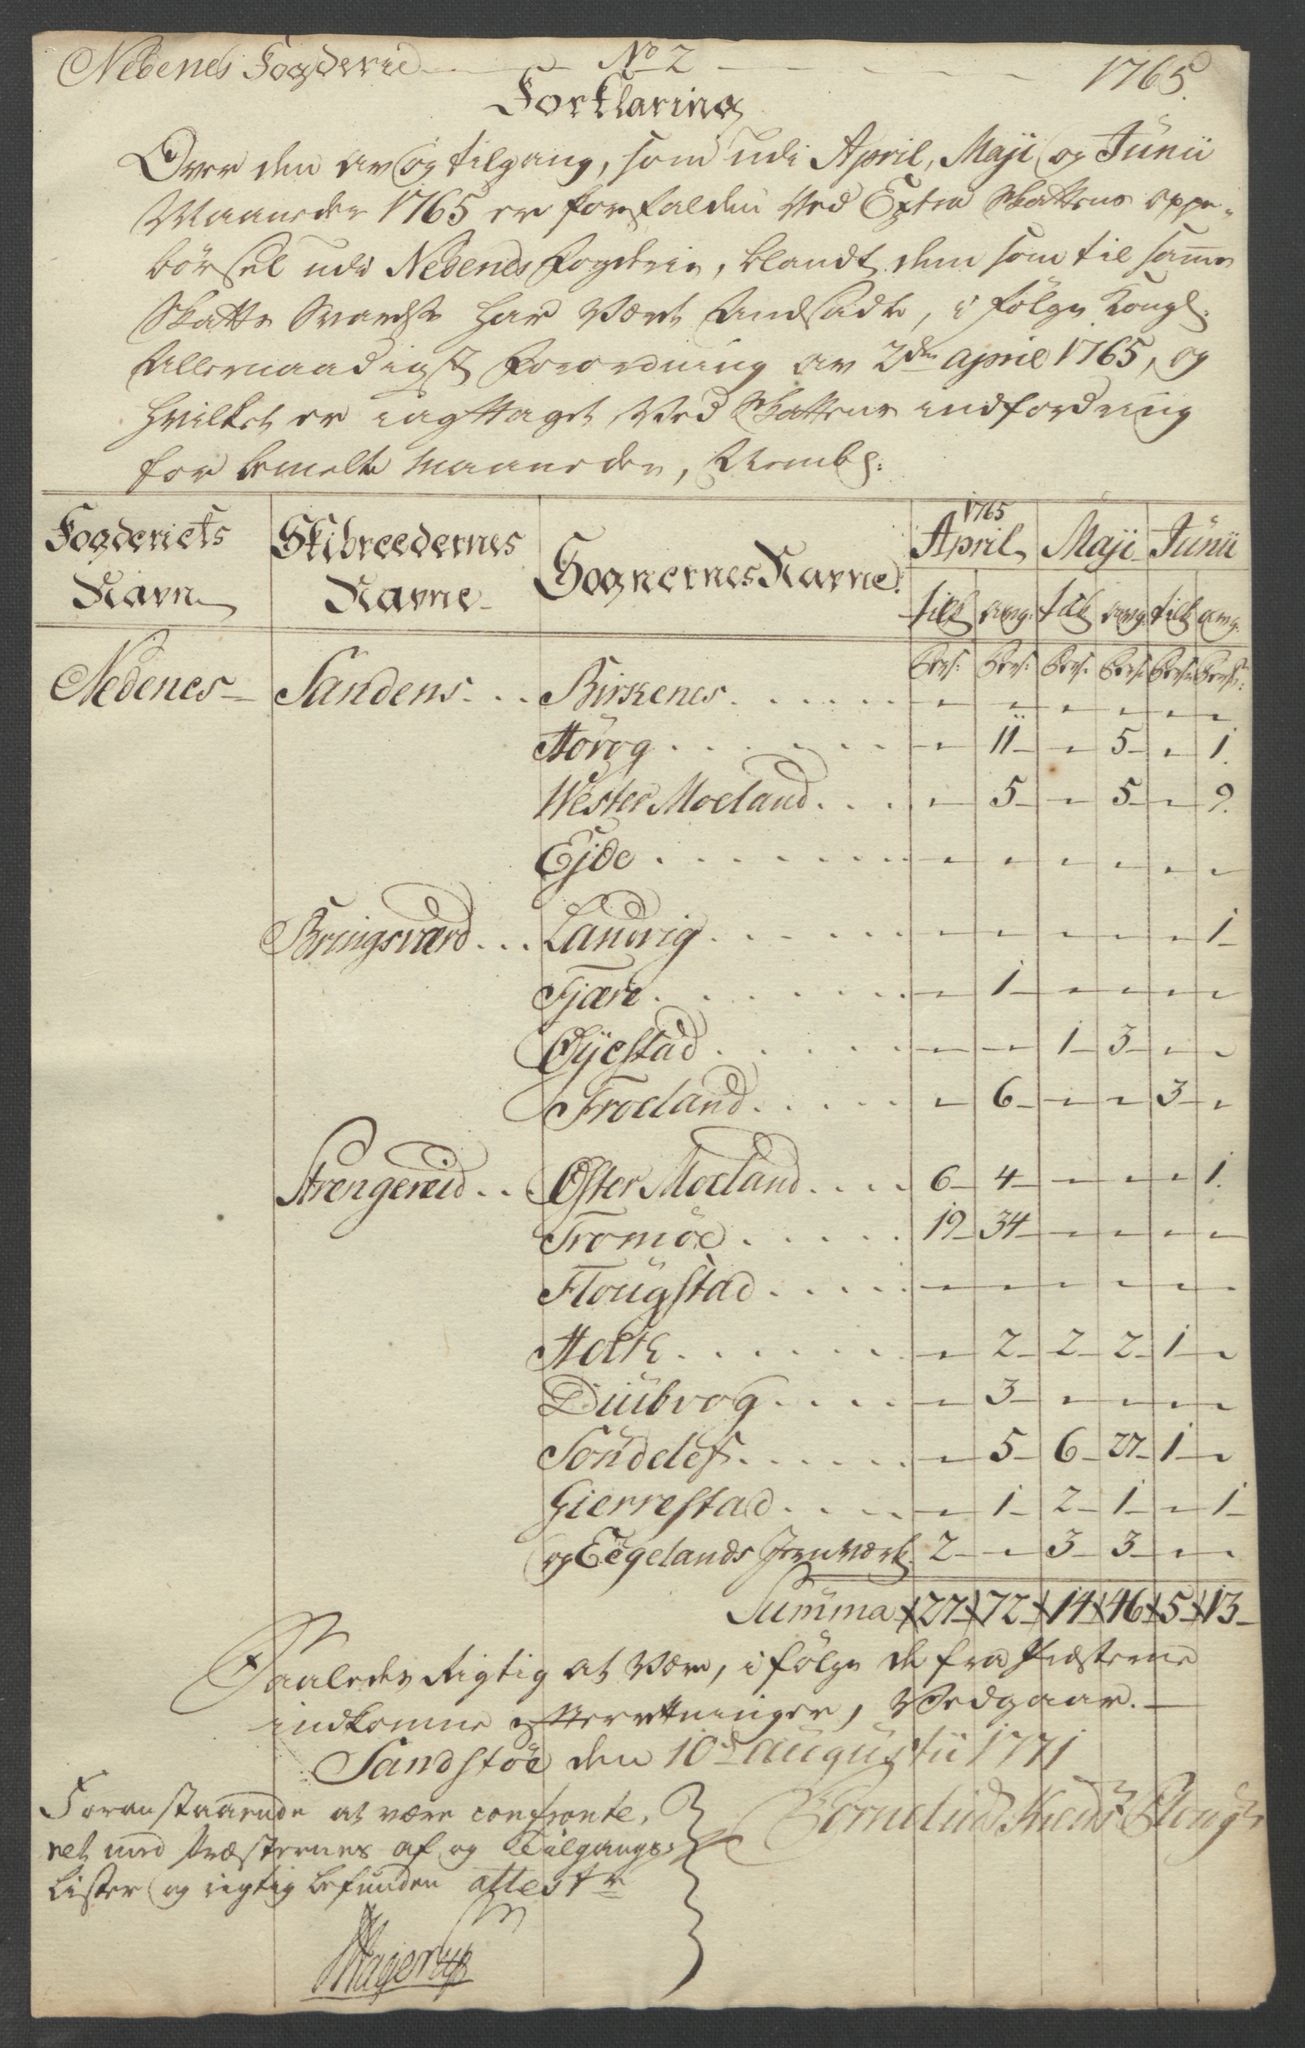 Nedenes Fogderie No 2 1765.
Forklaring
Over den av og tilgang, som udi April, Maji og Junii
Maaneder 1765 er forfalden ved Extra Skattens oppe-
børsel udi Nedenes Fogderie, blandt dem som til samme
Skatte Svarelse har været Ansadte, i følge Kongl:
Allernaadigst Forordning av 2den April 1765, og
hvilket er iagttaget ved Skattens indfordring
for bemelte Maaneder, Nembl:
Fogderiets Navn Skibreedernes Navne Sognernes Navne 1765 April Maji Junii
tilg avg: tilg avg: tilg avg:
Pers: Pers: Pers: Pers: Pers: Pers:
Nedenes Sandens Birkenes - - - - - -
Høvog - 11 - 5 - 1.
Wester Moeland - 5 - 5 - 9.
Ejde - - - - - -
Bringsværd Landvig - - - - - 1
Fjære - 1 - - - -
Øyestad - - 1 3 - -
Froeland - 6 - - 3 -
Strengereid Øster Moeland 6 4 - - - 1.
Tromøe 19 34 - - - -
Flougstad - - - - - -
Holte - 2 2 2 1 -
Diubvog - 3 - - - -
Søndelef - 5 6 27 1 -
Gierrestad - 1 2 1 - 1
og Eegelands Jernværk 2 - 3 3 - -
Summa 27 72 14 46 5 13
Saaledes Rigtig at være, i følge de fra Præsterne
indkomne efterretninger, Vedgaar.
Sandstøe den 10de Augustii 1771
Foranstaaende at være confronte-
ret med Præsternes af og Tilgangs-
Lister og rigtig befunden attestr
Hagerup